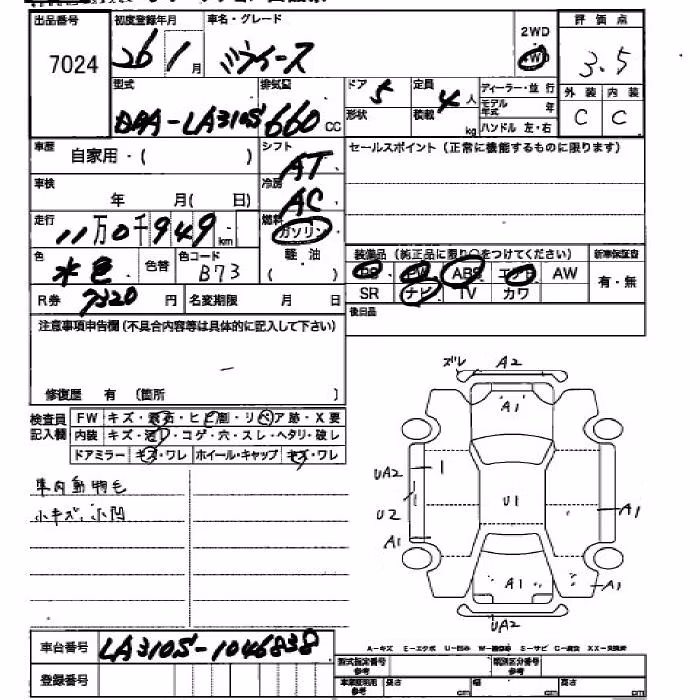 出品番号 初度登録年月 車名・グレード 2WD 評価点
7024 26 1 月 ミライース 4WD 3.5
型式 排気量 ドア 5 定員 4 人 ディーラー・並行 外装 内装
DAA-LA310S 660 CC 形状 積載 kg モデル年式 年 C C
ハンドル 左・右
車歴 自家用・( ) シフト AT セールスポイント(正常に機能するものに限ります)
車検 年 月( 日) 冷房 AC
走行 11万0千949 km 燃料 ガソリン
色 水色 色替 色コード B73 軽油 ( )
装備品(純正品に限り○をつけてください) 新車保証書
PS PW ABS エアB AW 有・無
SR ナビ TV カワ
R券 7320 円 名変期限 月 日
後日品
注意事項申告欄(不具合内容等は具体的に記入して下さい)
修復歴 有 (箇所 )
検査員記入欄 FW キズ・飛石・ヒビ割・リペア跡・X要
内装 キズ・汚レ・コゲ・穴・スレ・ヘタリ・破レ
ドアミラー キズ・ワレ ホイール・キャップ キズ・ワレ
車内動物毛
小キズ、小凹
ズレ A2
A1
UA2
U1
U2
A1
A1
A1 A1
UA2
車台番号 LA310S-1046838
A-キズ E-エクボ U-凹み
登録番号 型式指定番号 参考 類別区分番号 参考
車庫証明用 参考 長さ cm 幅 cm 高さ cm